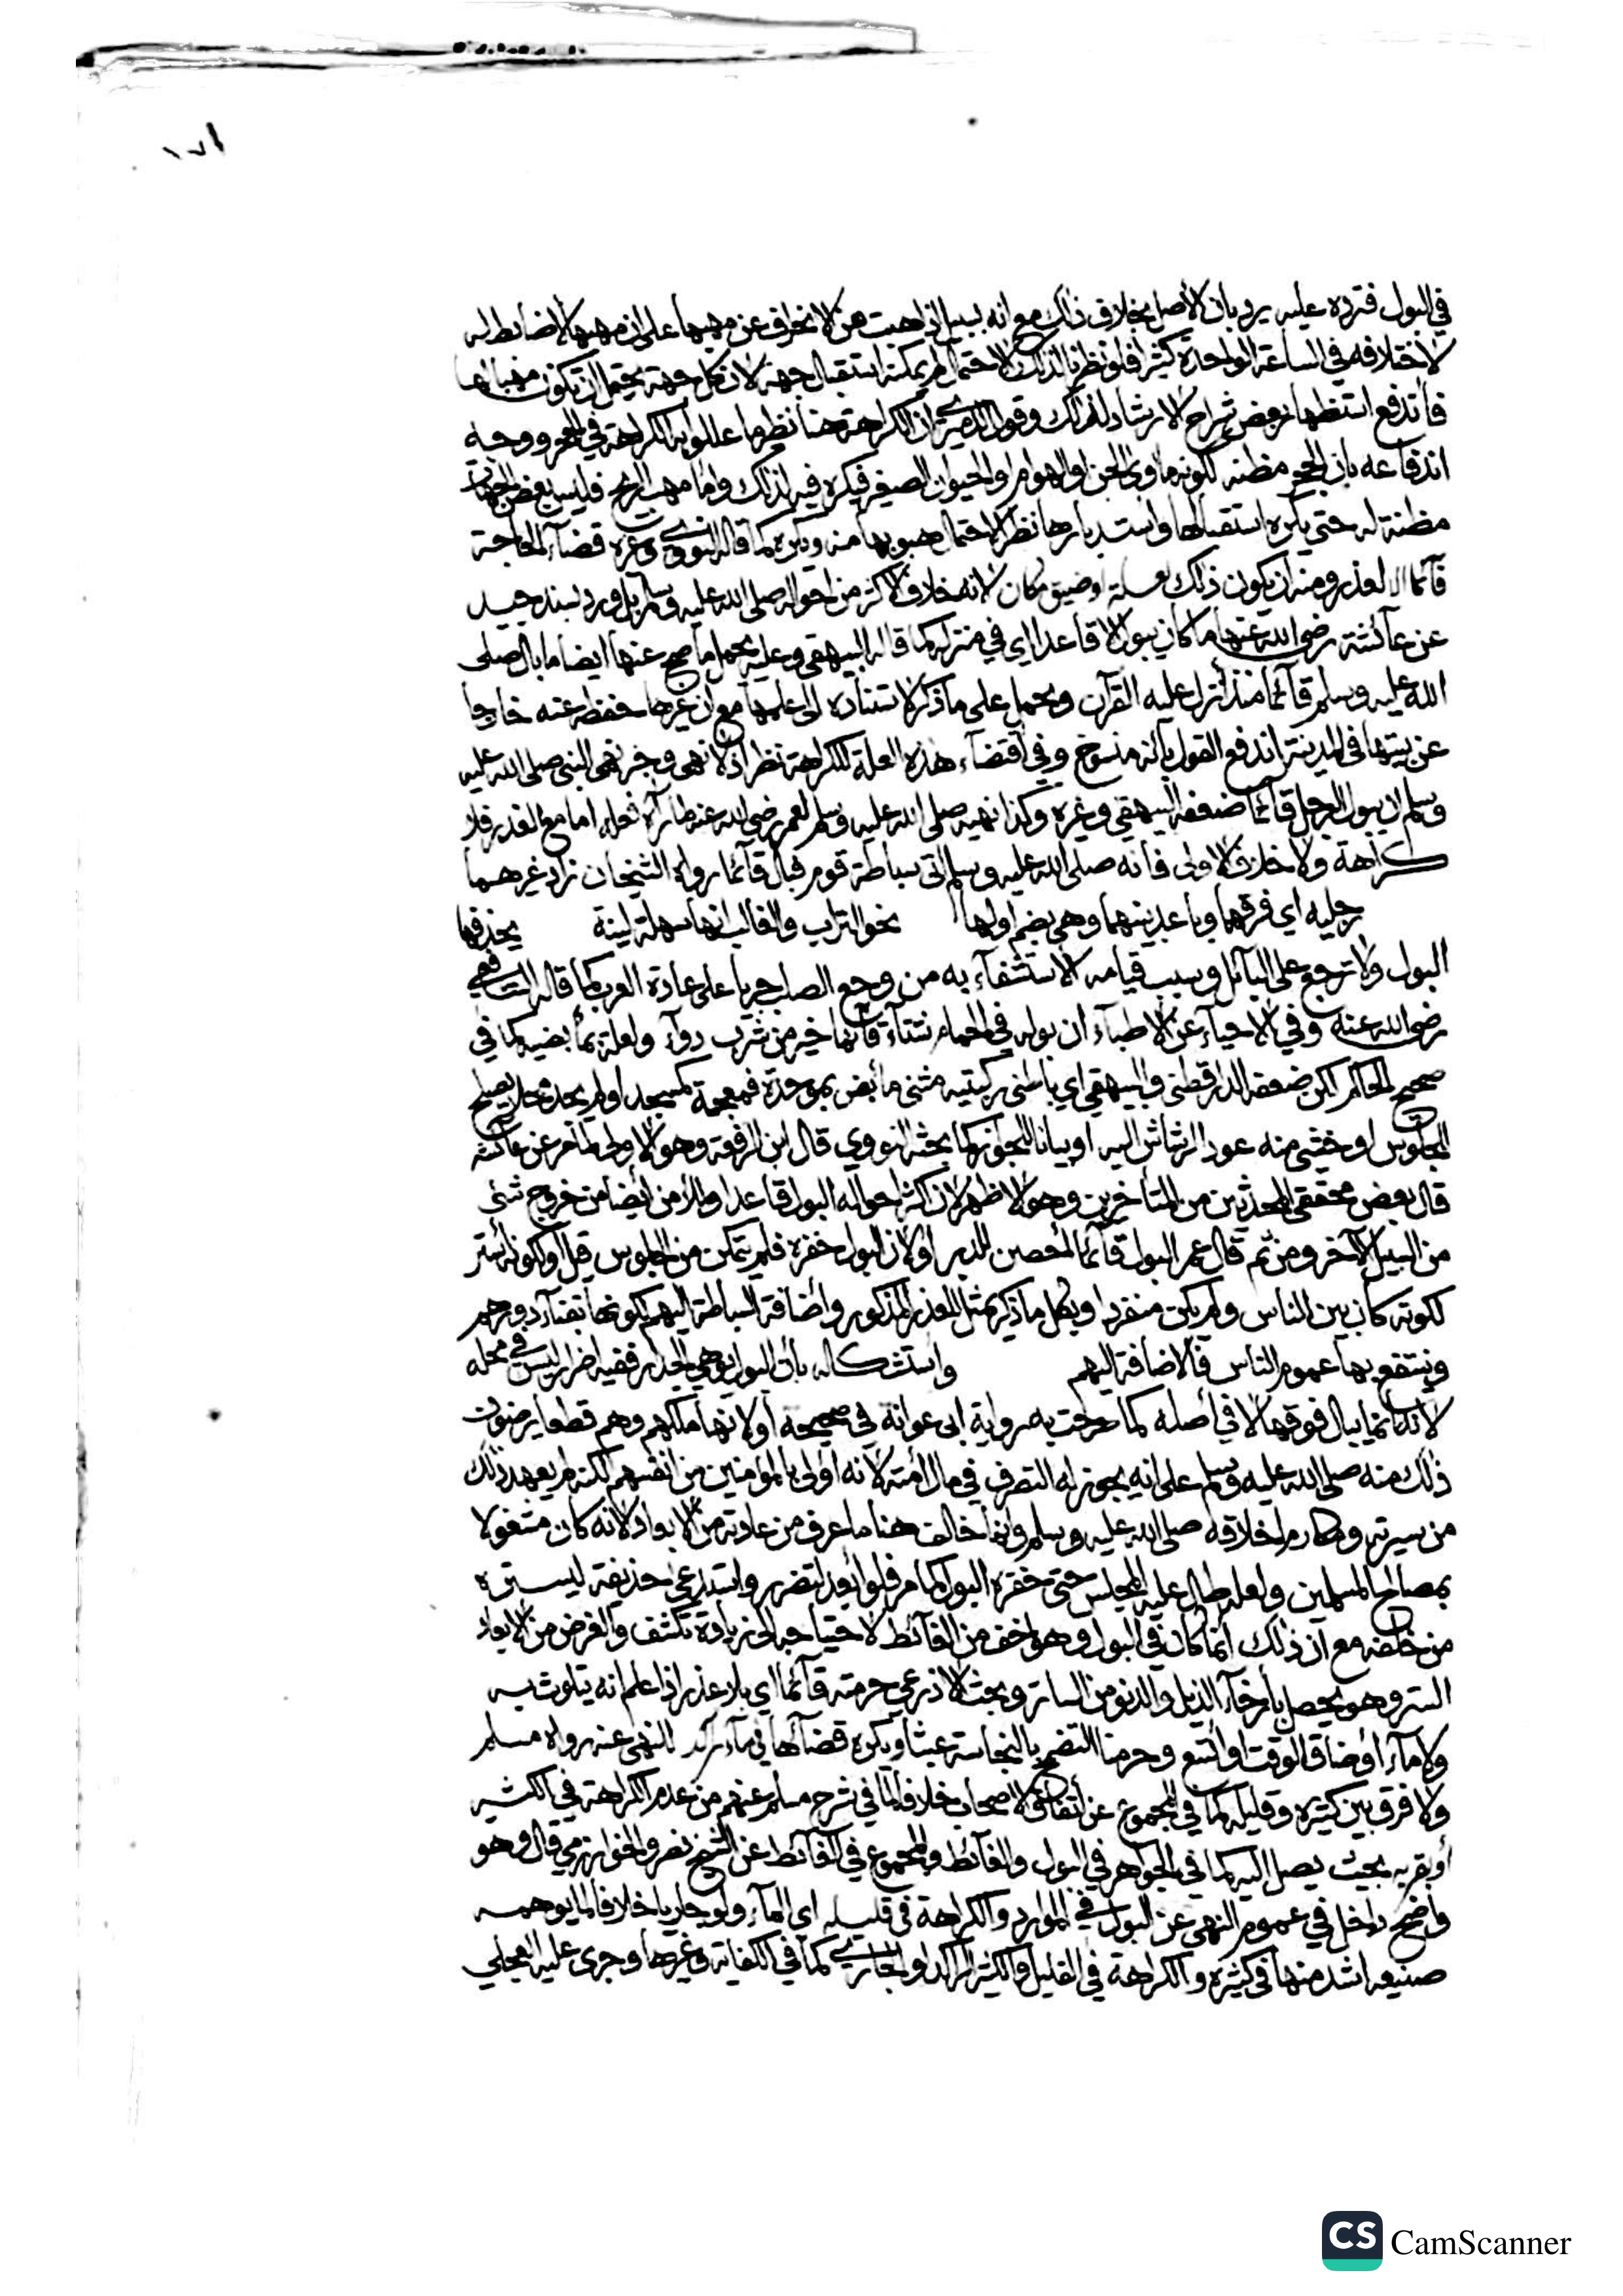 ١٧١
في البول فترده عليه يرد بان الأصل بخلاف ذلك مع انه بسبيل اذا هبت من الانحراف عن مهبها على ان مهبها لا ضابط له
لاختلافه في الساعة الواحدة كثيرا فلو نظرنا لذلك الاحتمال لم يمكنه استقبال جهة لان كل جهة يحتمل ان تكون مهبا لها
فاندفع استظهار بعض شراح الارشاد لذلك وقول الدميري ان الكراهة هنا نظير ما عللوا به الكراهة في الجحر ووجه
اندفاعه بان الجحر مظنة لكونه مأوى الجن او الهوام او الحيوان الصغير فيكره فيه لذلك واما مهب الريح فليس بعض الجهات
مظنة له حتى يكره استقبالها واستدبارها نظرا لاحتمال هبوبها منه ويكره كما قاله النووي وغيره قضاء الحاجة
قائما الا لعذر ومنه ان يكون ذلك لعلة او ضيق مكان لانه خلاف الاكثر من احواله صلى الله عليه وسلم بل ورد بسند جيد
عن عائشة رضي الله عنها ما كان يبول الا قاعدا اي في منزله كما قاله البيهقي وعليه يحمل ما صح عنها ايضا ما بال صلى
الله عليه وسلم قائما منذ أنزل عليه القرآن ويحمل على ما ذكر لاستناده الى علمها مع ان غيرها حفظ عنه خارجا
عن بيتها في المدينة اندفع القول بانه منسوخ وفي اقتضاء هذه العلة للكراهة نظر اذ لا نهي وخبر نهى النبي صلى الله عليه
وسلم ان يبول الرجل قائما ضعفه البيهقي وغيره وكذا نهيه صلى الله عليه وسلم لعمر رضي الله عنه لما رآه فعله اما مع العذر فلا
كراهة ولا خلاف الاولى فانه صلى الله عليه وسلم اتى سباطة قوم فبال قائما رواه الشيخان زاد غيرهما
رجليه اي فرقهما وباعد بينهما وهي بضم اولها نحو التراب والغالب انها سهلة لينة يخد فيها
البول ولا ترجع على البائل وسبب قيامه الاستشفاء به من وجع الصلب جريا على عادة العرب كما قاله الشافعي
رضي الله عنه وفي الاحياء عن الاطباء ان بوله في الحمام شتاء قائما خير من شرب دواء ولعلة بمأبضيه كما في
صحيح الحاكم لكن ضعفه الدارقطني والبيهقي اي باطني ركبتيه مثنى مأبض بموحدة فمعجمة كمسجد او لم يجد محلا يصلح
للجلوس او خشي منه عود الرشاش اليه او بيانا للجواز كما بحثه النووي قال ابن الرفعة وهو الاولى لما مر عن عائشة
قال بعض محققي المحدثين من المتأخرين وهو الاظهر لان اكثر احواله البول قاعدا وللأمن ايضا من خروج شئ
من السبيل الآخر ومن ثم قال عمر البول قائما أحصن للدبر او لان البول حفزه فلم يتمكن من الجلوس قبل او لكونه أستر
لكونه كان بين الناس ولم يكن منفردا وبكل ما ذكر يمثل للعذر المذكور واضافة السباطة اليهم لكونها بفناء دورهم
وينتفع بها عموم الناس فالاضافة اليهم واستشكاله بأن البول يوهي الجدار ففيه اضرار ليس في محله
لانه انما يبال فوقها لا في أصله كما صرحت به رواية ابى عوانة في صحيحه أو لانها ملكهم وهم قطعا يرضون
ذلك منه صلى الله عليه وسلم على انه يجوز له التصرف في مال أمته لانه أولى بالمؤمنين من انفسهم لكنه لم يعهد ذلك
من سيرته ومكارم اخلاقه صلى الله عليه وسلم وانما خالف هنا ما عرف من عادته من الابعاد لانه كان مشغولا
بمصالح المسلمين ولعله طال عليه المجلس حتى حفزه البول كما مر فلو أبعد لتضرر واستدعى حذيفة ليستره
من خلفه مع ان ذلك انما كان في البول وهو اخف من الغائط لاحتياجه الى زيادة تكشف والغرض من الابعاد
الستر وهو يحصل بارخاء الذيل والدنو من الساتر وبحث الاذرعي حرمته قائما اي بلا عذر اذا علم انه يتلوث به
ولا ماء أو ضاق الوقت او اتسع وحرمنا التضمخ بالنجاسة عبثا ويكره قضاؤها في ماء راكد للنهي عنه رواه مسلم
ولا فرق بين كثيره وقليله كما في المجموع عن اتفاق الاصحاب خلافا لما في شرح مسلم عنهم من عدم الكراهة في الكثير
أو بقربه بحيث يصل اليه كما في الجواهر في البول والغائط والمجموع في الغائط عن الشيخ نصر والخوارزمي قال وهو
واضح داخل في عموم النهي عن البول في الموارد والكراهة في قليله اي الماء ولو جاريا خلافا لما يوهمه
صنيعه اشد منها في كثيره والكراهة في القليل والكثير الراكد او الجاري كما في الكفاية وغيرها وجرى عليه العجلي
CS CamScanner